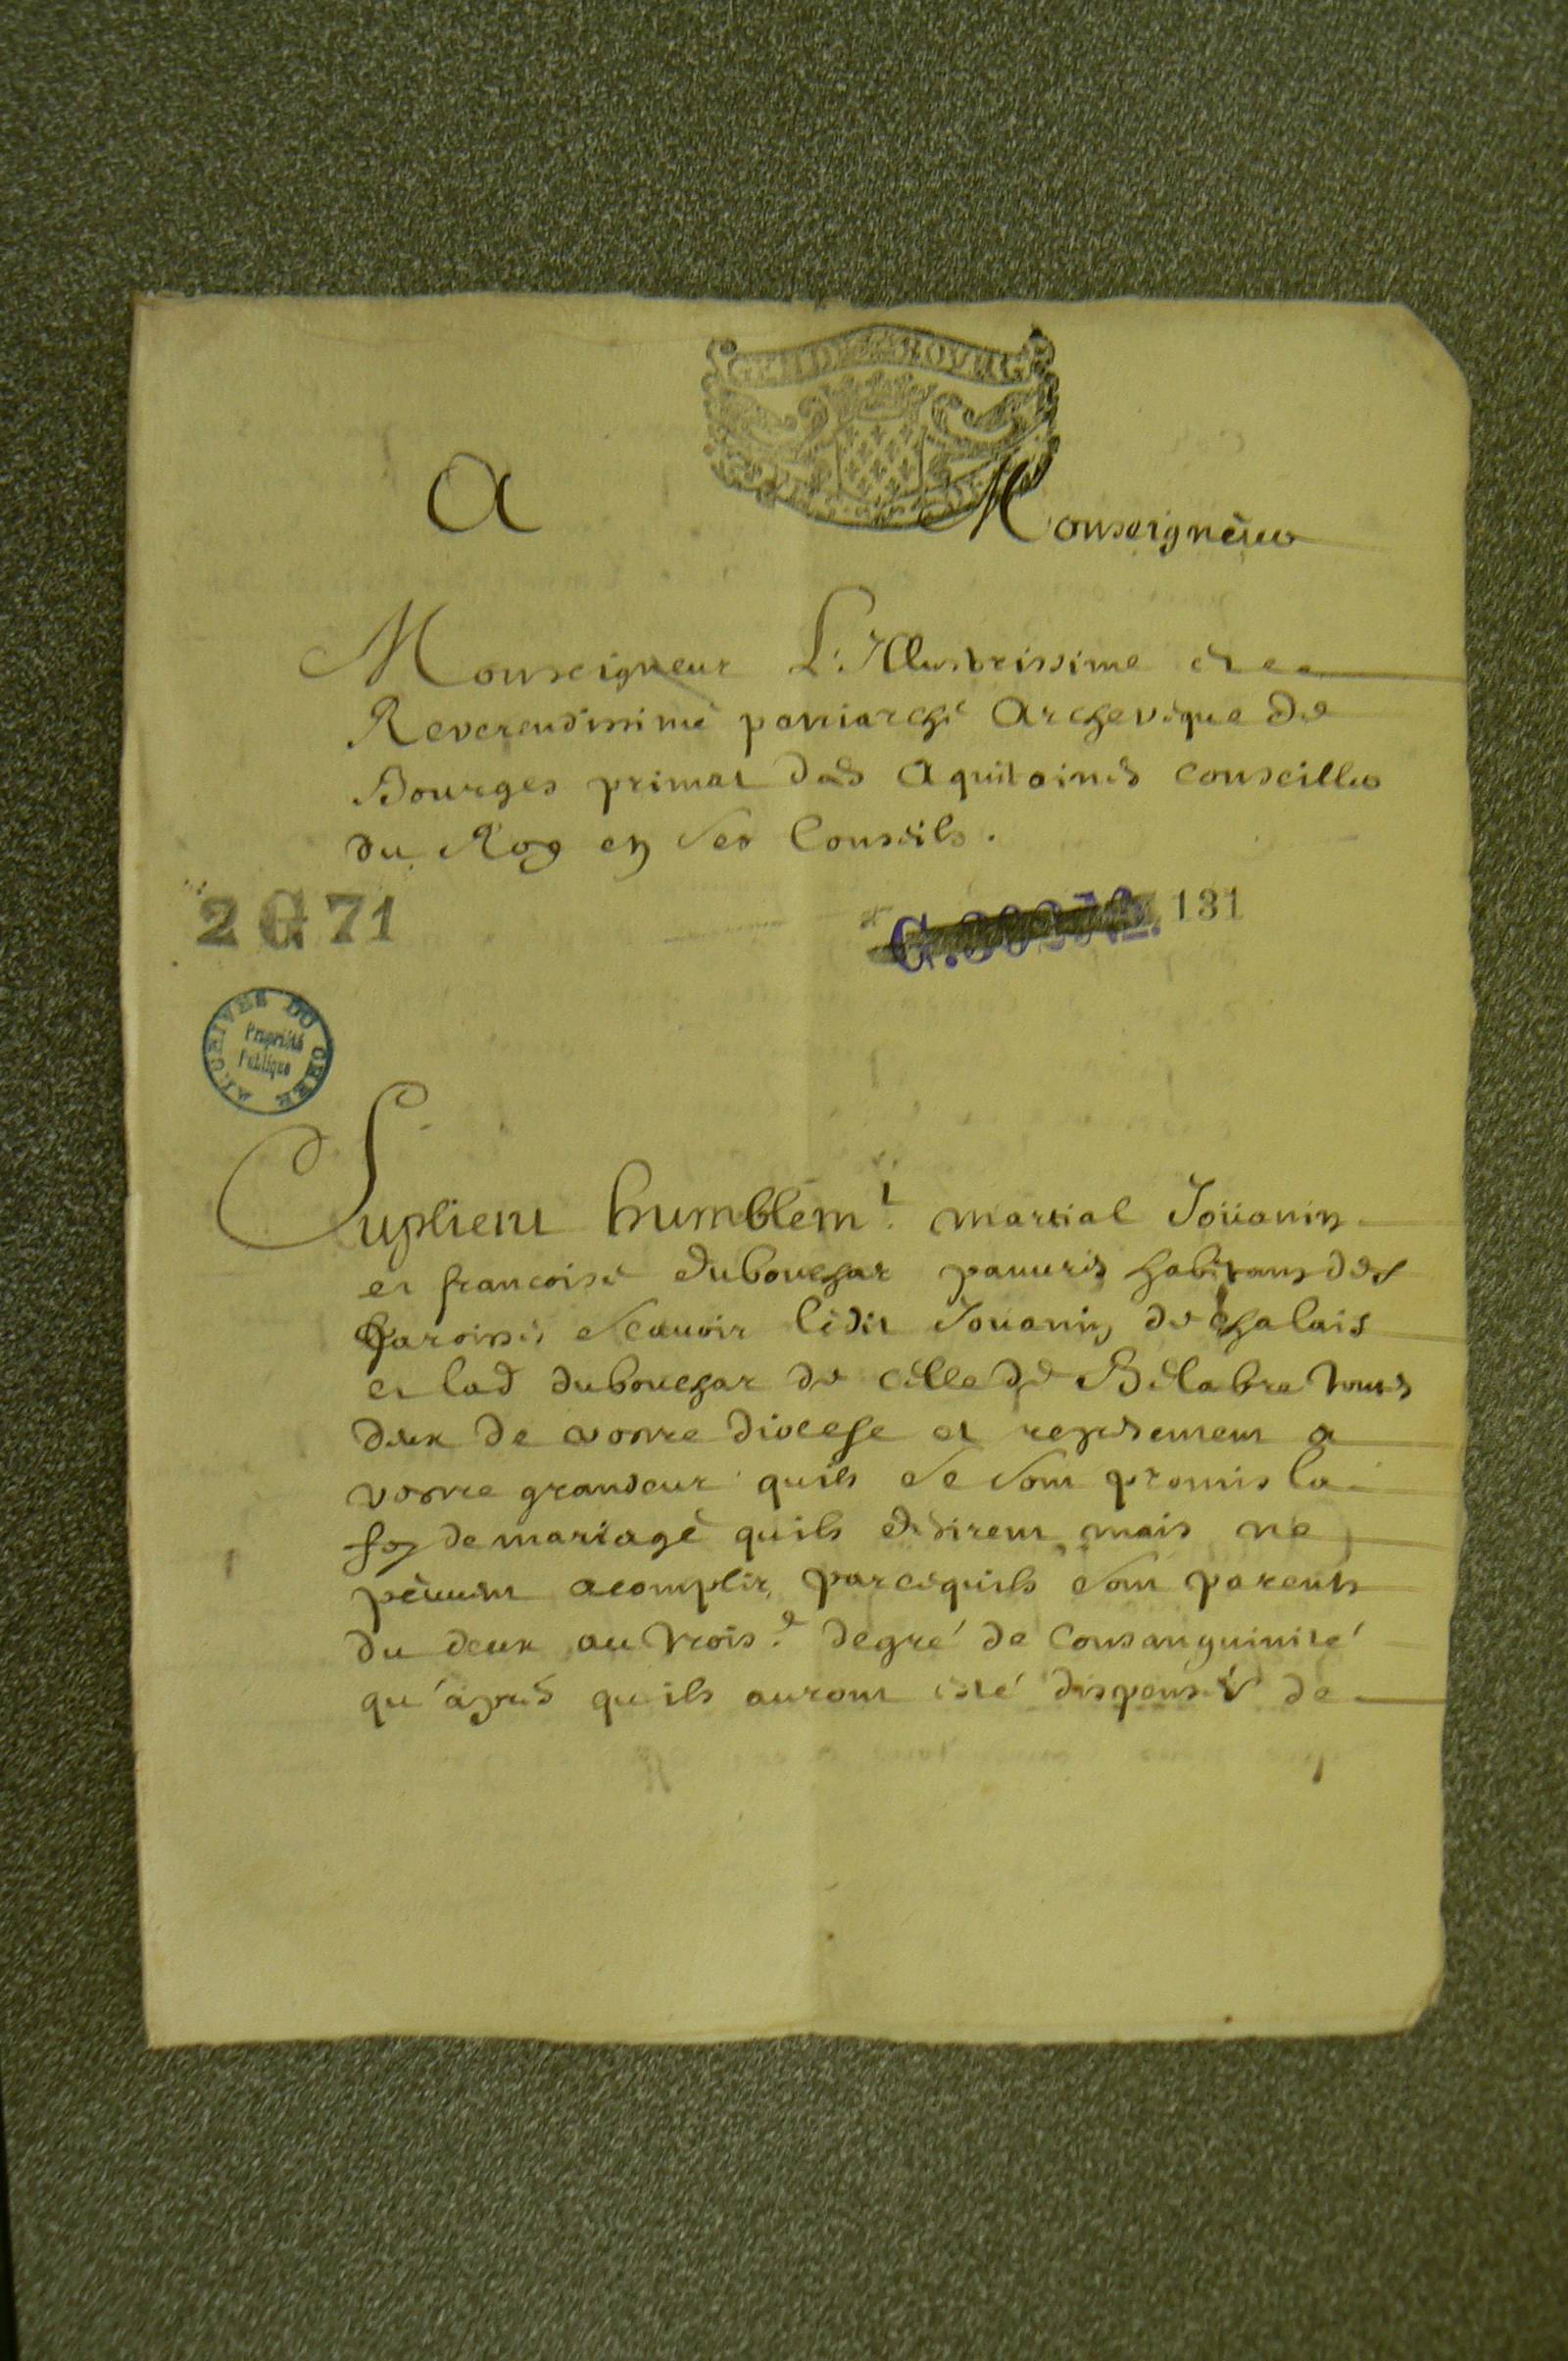 A
Monseigneur
Monseigneur L'Illustrissime et
Reverendissime patriarche Archeveque de
Bourges primat des Aquitaines conseiller
du Roy en ses Conseils.
2 G 71
131
ARCHIVES DU CHER
Propriété
Publique
Suplient humblemt. martial Joüanin
et francoise dubouchar pauvres habitans des
paroisses scauoir ledit Joüanin de chalais
et lad dubouchar de celle de Belabre tous
deux de vostre diocese et representent a
vostre grandeur quils se sont promis la
foy de mariage quils desirent mais ne
peuuent acomplir parcequils sont parents
du deux au trois.e degré de Consanguinité
qu'apres quils auront esté dispensés de